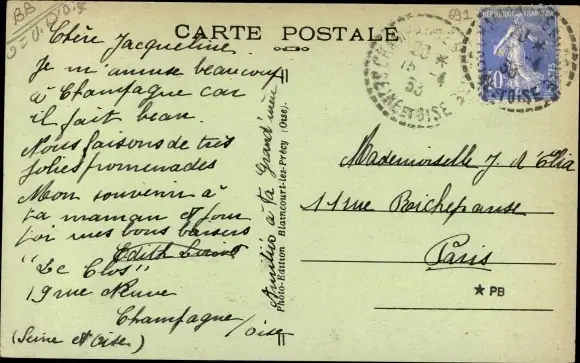 BB
CARTE POSTALE
691
Chère Jacqueline
Je m'amuse beaucoup
à Champagne car
il fait beau.
Nous faisons de très
jolies promenades
Mon souvenir à
ta maman et pour
toi mes bons baisers
Edith
"Le Clos"
19 rue Neuve
Champagne/oise
(Seine et Oise)
Amitiés à ta Grand'mère
Photo-Edition Blaincourt-les-Précy (Oise).
Mademoiselle J. d'Elia
11 rue Boichepanse
Paris
★ PB
REPUBLIQUE FRANÇAISE
40
POSTES
20
15 - 4
33
SEINE ET OISE